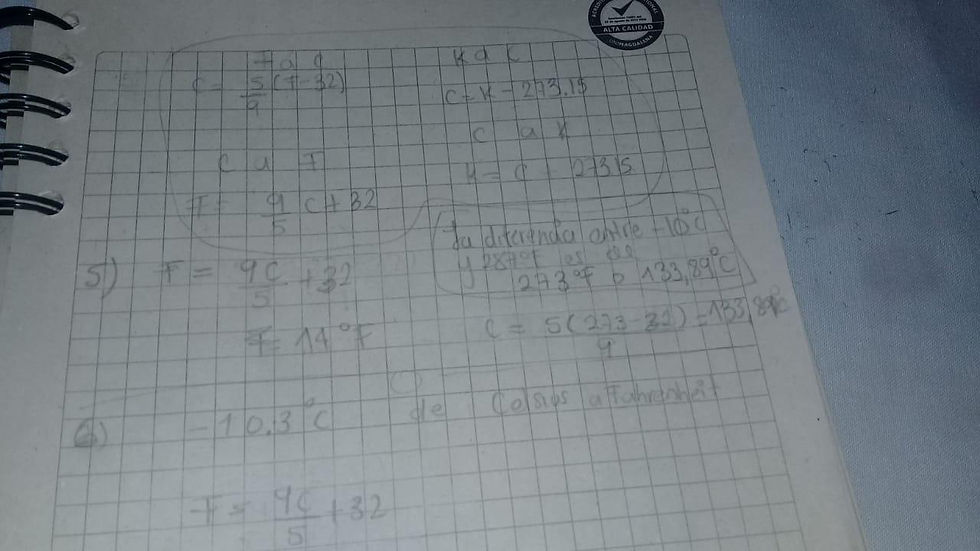 ALTA CALIDAD
F a C
C = 5/9 (F-32)
K a C
C=K-273.15
C a K
K = C + 273.15
C a F
F = 9/5 C+32
La diferencia entre -10°C
y 287°F es de
273°F o 133,89°C
5) F = 9C/5 +32
F= 14°F
C = 5(273-32)/9 =133,89°C
6) -10.3°C de Celsius a Fahrenheit
F = 9C/5 +32